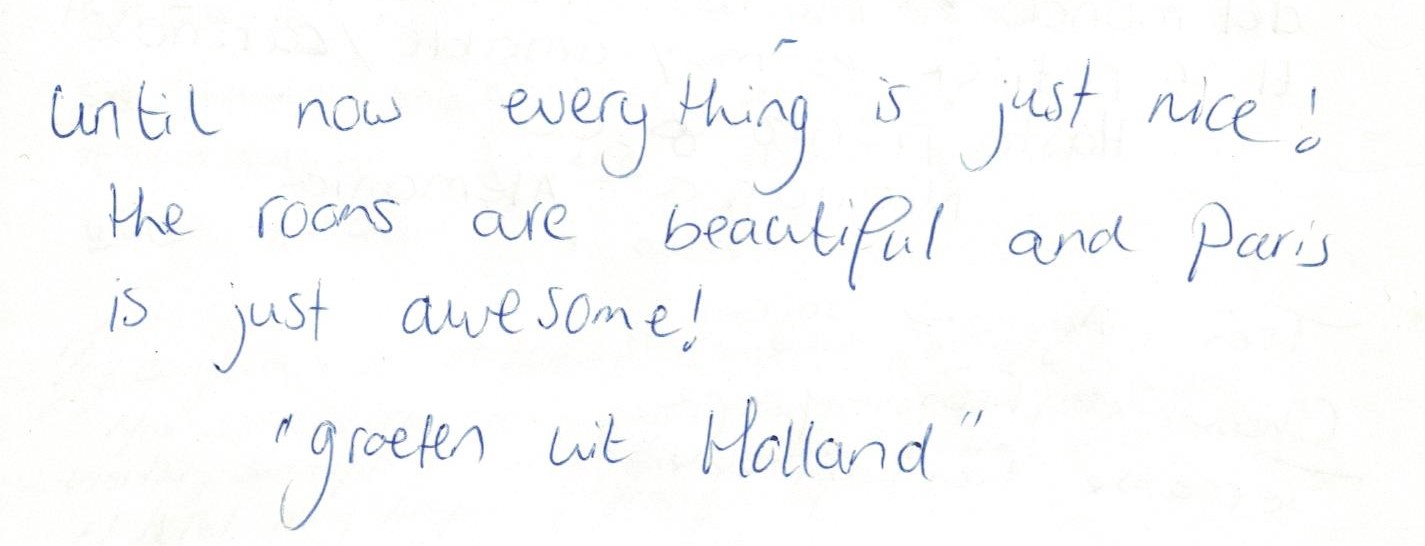 until now everything is just nice!
the rooms are beautiful and Paris
is just awesome!
"groeten uit Holland"